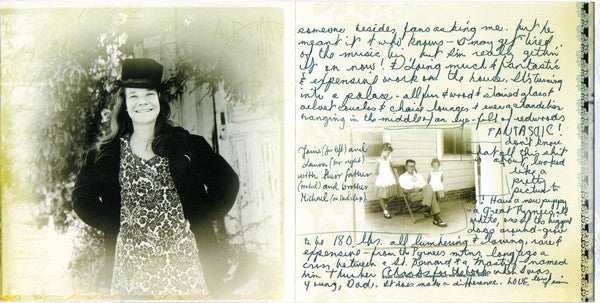 someone besides fans asking me. but he
meant it & who knows - I may get tired
of the music biz, but I'm really gettin'
it on now! I'm doing much & fantastic
& expensive work on the house. It's turning
into a palace - all fur & wood & stained glass &
velvet couches & chaise lounges & even a chandelier
hanging in the middle of an eye-full of redwoods
FANTASTIC!
don't know
what all this shit
about, looked
like a
pretty
picture to
Janis (far left) and
Laura (far right)
with their father
(center) and brother
Michael (on father's
! Have a new puppy
- a great Pyrenees
white, one of the biggest
dogs around - grow
to be 180 lbs. all lumbering & loving, rare &
expensive - from the Pyrenees mtns. long ago a
cross between a St. Bernard & a Mastiff - named
him Thurber for the book when I was
young, Dad. It does make a difference. LOVE,